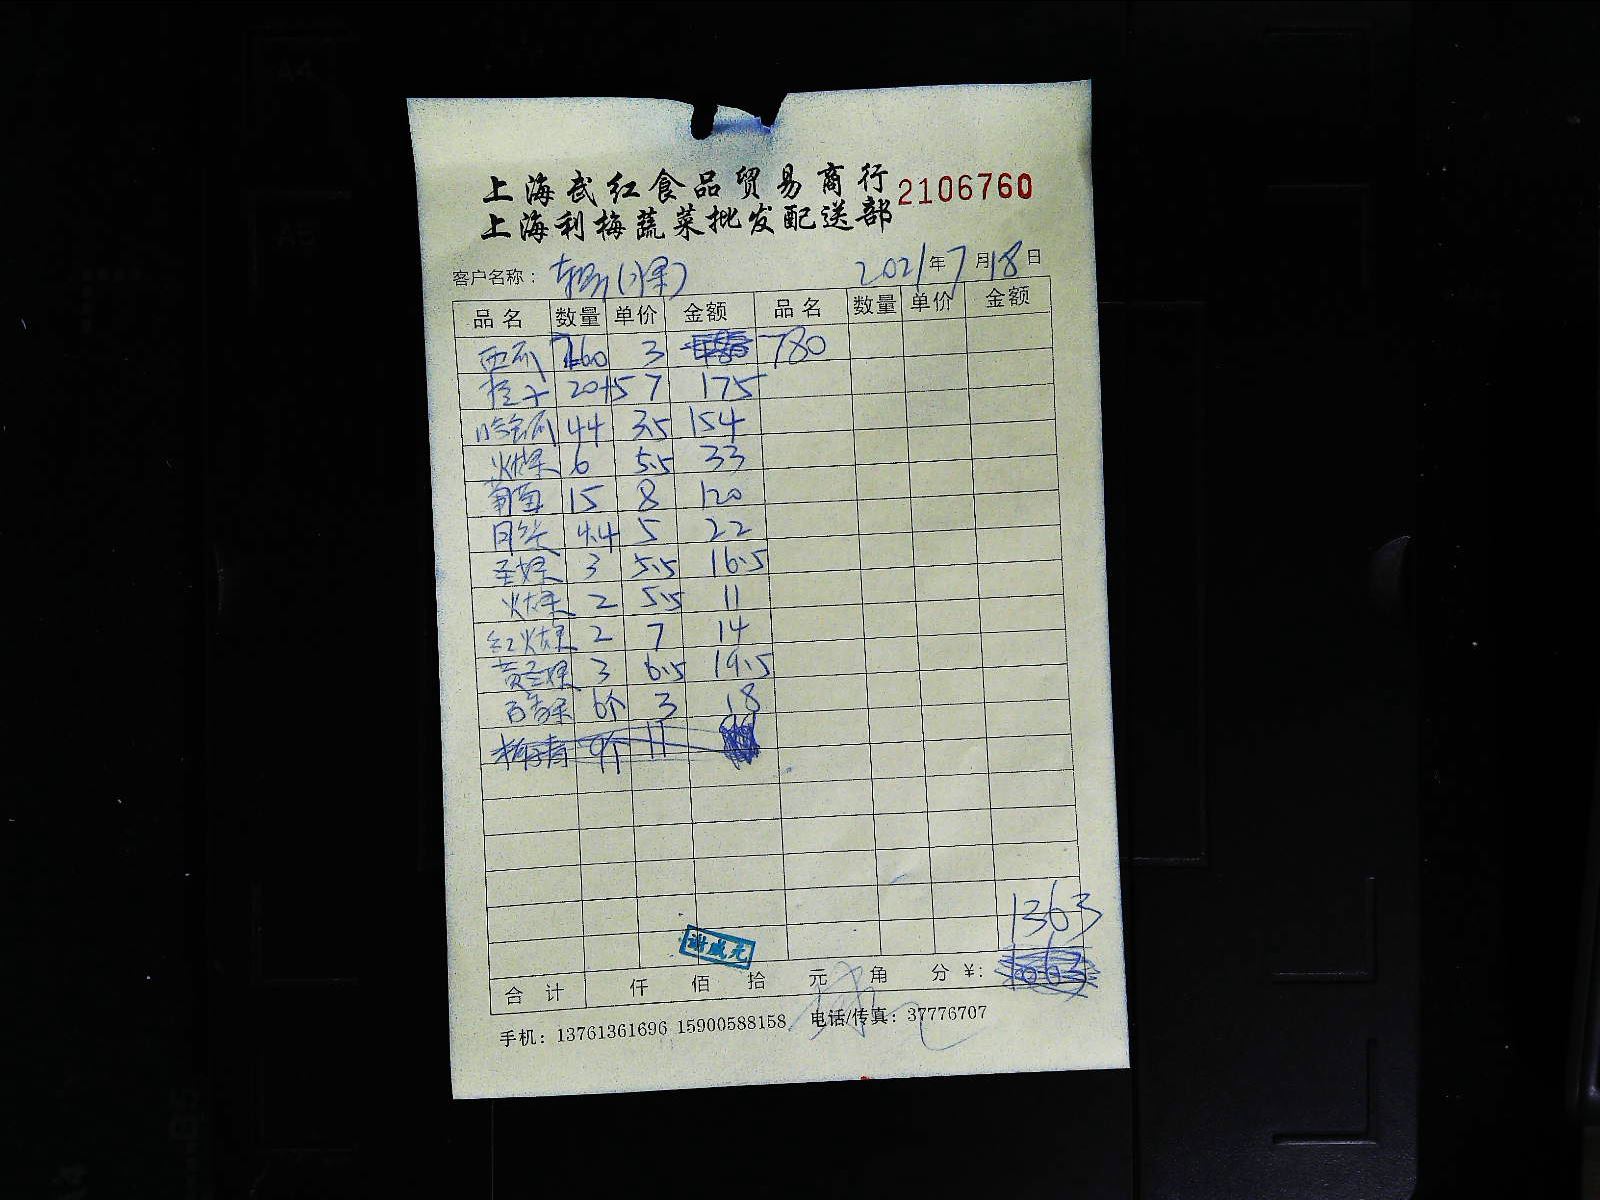 上海武红食品贸易商行
2106760
上海利梅蔬菜批发配送部
客户名称： (水果) 2021年7月18日
品名 数量 单价 金额 品名 数量 单价 金额
西瓜 260 3 780
提子 20+5 7 175
哈密瓜 44 3.5 154
火龙果 6 5.5 33
葡萄 15 8 120
4.4 5 22
圣女果 3 5.5 16.5
火龙果 2 5.5 11
红火龙果 2 7 14
黄圣女果 3 6.5 19.5
百香果 6个 3 18
9个 11
1363
谢成元
合计 仟 佰 拾 元 角 分 ¥:
手机：13761361696 15900588158 电话/传真：37776707